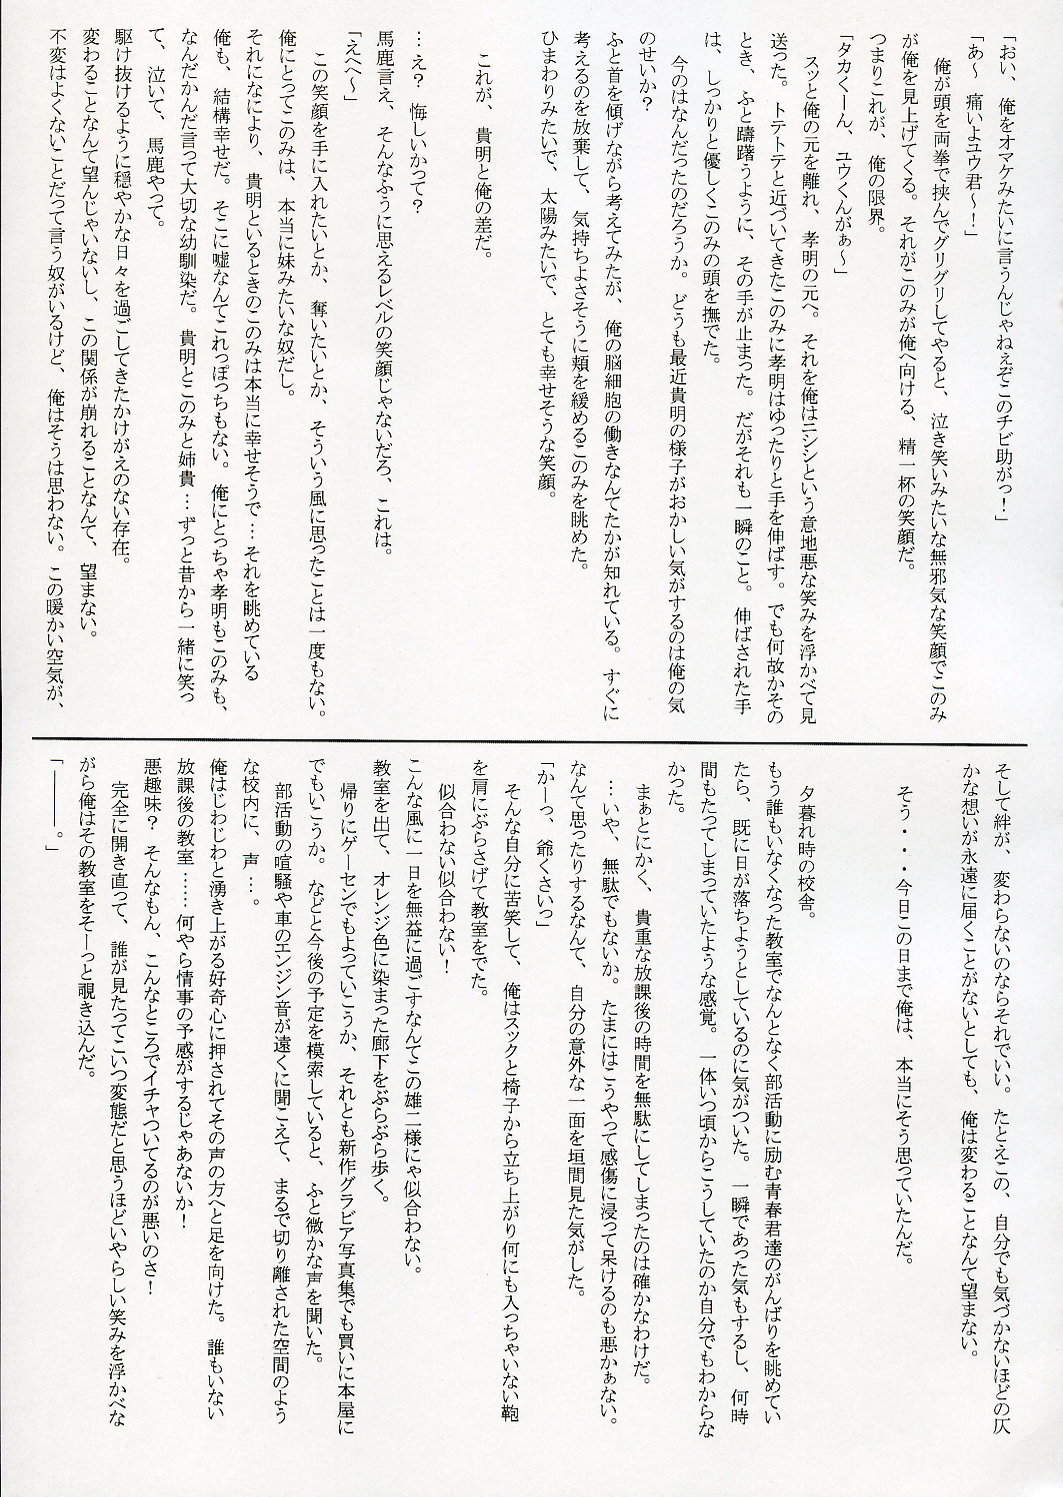 「おい、俺をオマケみたいに言うんじゃねえぞこのチビ助がっ！」
「あ～　痛いよユウ君～！」
　俺が頭を両拳で挟んでグリグリしてやると、泣き笑いみたいな無邪気な笑顔でこのみ
が俺を見上げてくる。それがこのみが俺へ向ける、精一杯の笑顔だ。
つまりこれが、俺の限界。
「タカくーん、ユウくんがぁ～」
　スッと俺の元を離れ、孝明の元へ。それを俺はニシシという意地悪な笑みを浮かべて見
送った。トテトテと近づいてきたこのみに孝明はゆったりと手を伸ばす。でも何故かその
とき、ふと躊躇うように、その手が止まった。だがそれも一瞬のこと。伸ばされた手
は、しっかりと優しくこのみの頭を撫でた。
　今のはなんだったのだろうか。どうも最近貴明の様子がおかしい気がするのは俺の気
のせいか？
ふと首を傾げながら考えてみたが、俺の脳細胞の働きなんてたかが知れている。すぐに
考えるのを放棄して、気持ちよさそうに頬を緩めるこのみを眺めた。
ひまわりみたいで、太陽みたいで、とても幸せそうな笑顔。
これが、貴明と俺の差だ。
…え？　悔しいかって？
馬鹿言え、そんなふうに思えるレベルの笑顔じゃないだろ、これは。
「えへへ～」
　この笑顔を手に入れたいとか、奪いたいとか、そういう風に思ったことは一度もない。
俺にとってこのみは、本当に妹みたいな奴だし。
それになにより、貴明といるときのこのみは本当に幸せそうで…それを眺めている
俺も、結構幸せだ。そこに嘘なんてこれっぽっちもない。俺にとっちゃ孝明もこのみも、
なんだかんだ言って大切な幼馴染だ。貴明とこのみと姉貴…ずっと昔から一緒に笑っ
て、泣いて、馬鹿やって。
駆け抜けるように穏やかな日々を過ごしてきたかけがえのない存在。
変わることなんて望んじゃいないし、この関係が崩れることなんて、望まない。
不変はよくないことだって言う奴がいるけど、俺はそうは思わない。この暖かい空気が、
そして絆が、変わらないのならそれでいい。たとえこの、自分でも気づかないほどの仄
かな想いが永遠に届くことがないとしても、俺は変わることなんて望まない。
そう・・・今日この日まで俺は、本当にそう思っていたんだ。
夕暮れ時の校舎。
もう誰もいなくなった教室でなんとなく部活動に励む青春君達のがんばりを眺めてい
たら、既に日が落ちようとしているのに気がついた。一瞬であった気もするし、何時
間もたってしまっていたような感覚。一体いつ頃からこうしていたのか自分でもわからな
かった。
　まぁとにかく、貴重な放課後の時間を無駄にしてしまったのは確かなわけだ。
　…いや、無駄でもないか。たまにはこうやって感傷に浸って呆けるのも悪かぁない。
なんて思ったりするなんて、自分の意外な一面を垣間見た気がした。
「かーっ、爺くさいっ」
　そんな自分に苦笑して、俺はスックと椅子から立ち上がり何にも入っちゃいない鞄
を肩にぶらさげて教室をでた。
　似合わない似合わない！
こんな風に一日を無益に過ごすなんてこの雄二様にゃ似合わない。
教室を出て、オレンジ色に染まった廊下をぶらぶら歩く。
　帰りにゲーセンでもよっていこうか、それとも新作グラビア写真集でも買いに本屋に
でもいこうか。などと今後の予定を模索していると、ふと微かな声を聞いた。
　部活動の喧騒や車のエンジン音が遠くに聞こえて、まるで切り離された空間のよう
な校内に、声…。
俺はじわじわと湧き上がる好奇心に押されてその声の方へと足を向けた。誰もいない
放課後の教室……何やら情事の予感がするじゃあないか！
悪趣味？　そんなもん、こんなところでイチャついてるのが悪いのさ！
　完全に開き直って、誰が見たってこいつ変態だと思うほどいやらしい笑みを浮かべな
がら俺はその教室をそーっと覗き込んだ。
「――――。」